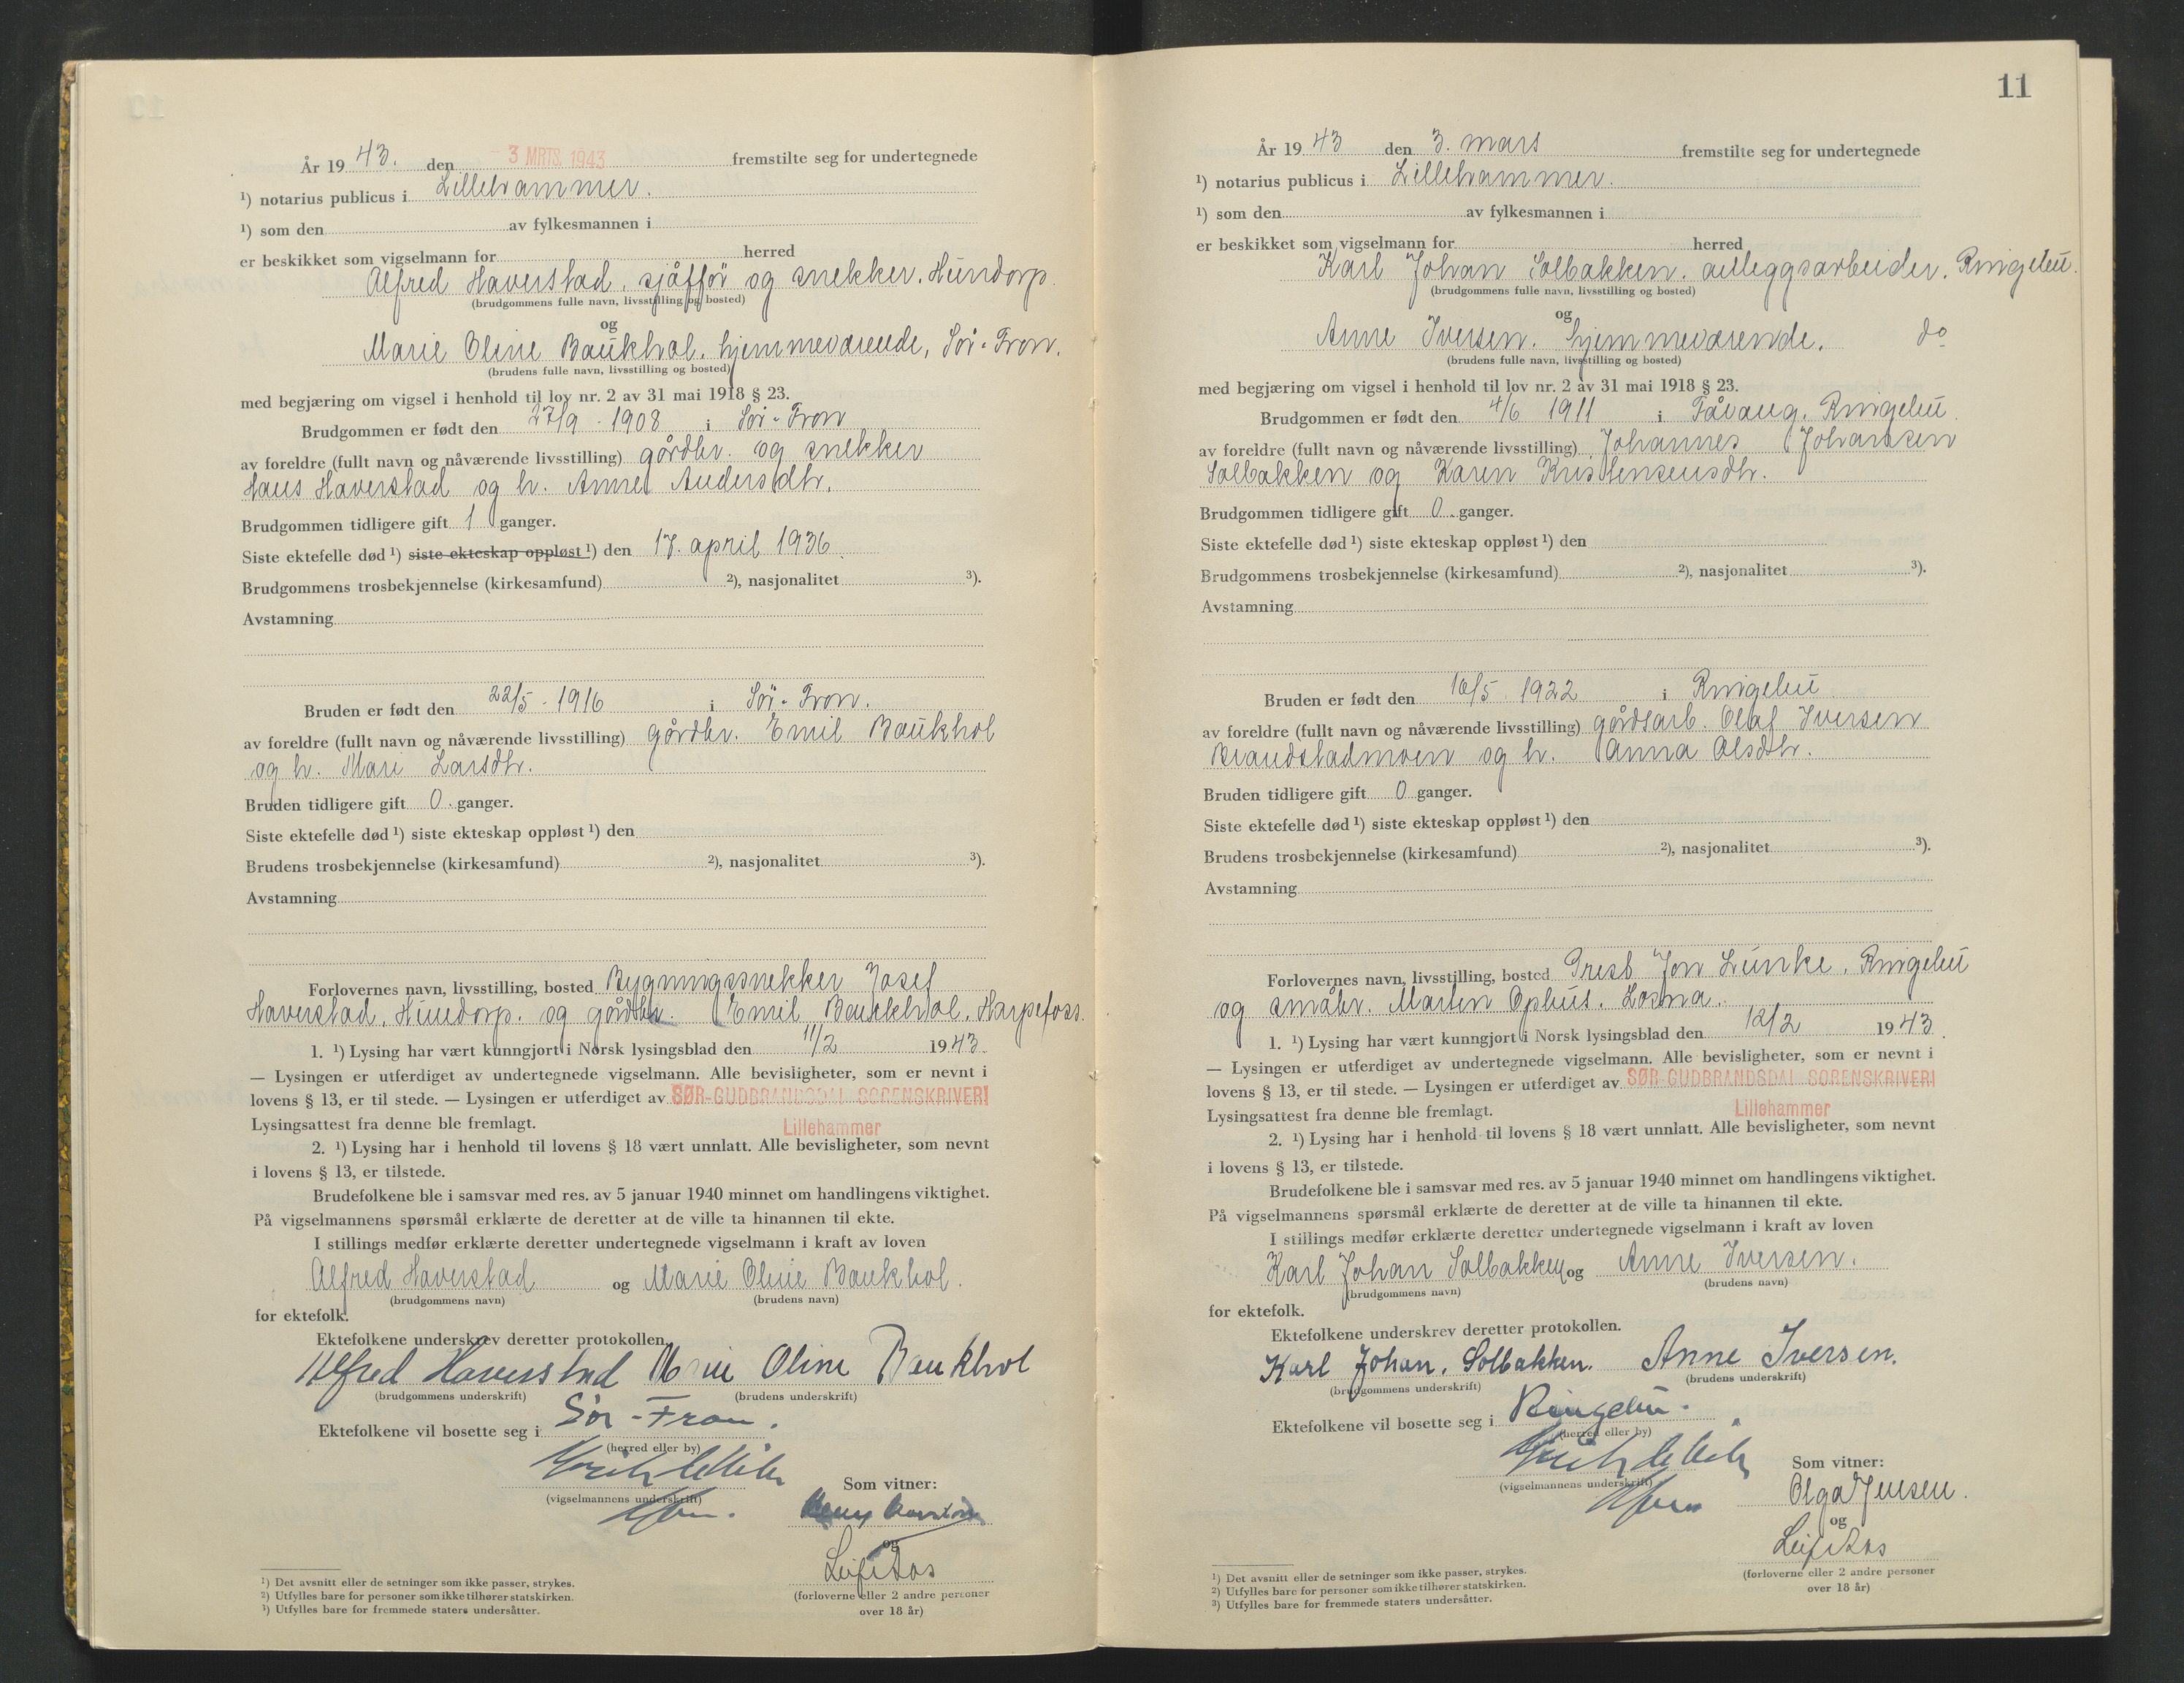 År 19 43. den - 3 MRTS. 1943 fremstilte seg for undertegnede
¹) notarius publicus i Lillehammer.
¹) som den av fylkesmannen i
er beskikket som vigselmann for herred
Alfred Haverstad, sjåffør og snekker, Hundorp.
(brudgommens fulle navn, livsstilling og bosted)
og
Marie Oline Baukhol, hjemmeværende, Sør-Fron.
(brudens fulle navn, livsstilling og bosted)
med begjæring om vigsel i henhold til lov nr. 2 av 31 mai 1918 § 23.
Brudgommen er født den 27/9 - 1908 i Sør-Fron
av foreldre (fullt navn og nåværende livsstilling) gårdbr. og snekker
Hans Haverstad og h. Anne Andersdtr.
Brudgommen tidligere gift 1 ganger.
Siste ektefelle død ¹) siste ekteskap oppløst ¹) den 17. april 1936.
Brudgommens trosbekjennelse (kirkesamfund) ²), nasjonalitet ³).
Avstamning
Bruden er født den 22/5 - 1916 i Sør-Fron.
av foreldre (fullt navn og nåværende livsstilling) gårdbr. Emil Baukhol
og h. Mari Larsdtr.
Bruden tidligere gift 0. ganger.
Siste ektefelle død ¹) siste ekteskap oppløst ¹) den
Brudens trosbekjennelse (kirkesamfund) ²), nasjonalitet ³).
Avstamning
Forlovernes navn, livsstilling, bosted Bygningssnekker Josef
Haverstad, Hundorp. og gårdbr. Emil Baukhol, Harpefoss.
1. ¹) Lysing har vært kunngjort i Norsk lysingsblad den 11/2 1943
— Lysingen er utferdiget av undertegnede vigselmann. Alle bevisligheter, som er nevnt i
lovens § 13, er til stede. — Lysingen er utferdiget av SØR-GUDBRANDSDAL SORENSKRIVERI
Lysingsattest fra denne ble fremlagt. Lillehammer
2. ¹) Lysing har i henhold til lovens § 18 vært unnlatt. Alle bevisligheter, som nevnt
i lovens § 13, er tilstede.
Brudefolkene ble i samsvar med res. av 5 januar 1940 minnet om handlingens viktighet.
På vigselmannens spørsmål erklærte de deretter at de ville ta hinannen til ekte.
I stillings medfør erklærte deretter undertegnede vigselmann i kraft av loven
Alfred Haverstad og Marie Oline Baukhol.
(brudgommens navn) (brudens navn)
for ektefolk.
Ektefolkene underskrev deretter protokollen.
Alfred Haverstad Marie Oline Baukhol
(brudgommens underskrift) (brudens underskrift)
Ektefolkene vil bosette seg i Sør-Fron.
(herred eller by)
Som vitner:
(vigselmannens underskrift)
og
Leif Aas
(forloverne eller 2 andre personer
over 18 år)
¹) Det avsnitt eller de setninger som ikke passer, strykes.
²) Utfylles bare for personer som ikke tilhører statskirken.
³) Utfylles bare for fremmede staters undersåtter.
11
År 19 43 den 3. mars fremstilte seg for undertegnede
¹) notarius publicus i Lillehammer.
¹) som den av fylkesmannen i
er beskikket som vigselmann for herred
Karl Johan Solbakken, anleggsarbeider, Ringebu.
(brudgommens fulle navn, livsstilling og bosted)
og
Anne Iversen, hjemmeværende. do
(brudens fulle navn, livsstilling og bosted)
med begjæring om vigsel i henhold til lov nr. 2 av 31 mai 1918 § 23.
Brudgommen er født den 4/6 1911 i Fåvang, Ringebu.
av foreldre (fullt navn og nåværende livsstilling) Johannes Johansen
Solbakken og Karen Kristensensdtr.
Brudgommen tidligere gift 0. ganger.
Siste ektefelle død ¹) siste ekteskap oppløst ¹) den
Brudgommens trosbekjennelse (kirkesamfund) ²), nasjonalitet ³).
Avstamning
Bruden er født den 16/5 1922 i Ringebu
av foreldre (fullt navn og nåværende livsstilling) gårdsarb. Olaf Iversen
Brandstadmoen og h. Anna Olsdtr.
Bruden tidligere gift 0 ganger.
Siste ektefelle død ¹) siste ekteskap oppløst ¹) den
Brudens trosbekjennelse (kirkesamfund) ²), nasjonalitet ³).
Avstamning
Forlovernes navn, livsstilling, bosted Prest Jon Lunke, Ringebu
og småbr. Martin Ophus, Losna.
1. ¹) Lysing har vært kunngjort i Norsk lysingsblad den 12/2 1943.
— Lysingen er utferdiget av undertegnede vigselmann. Alle bevisligheter, som er nevnt i
lovens § 13, er til stede. — Lysingen er utferdiget av SØR-GUDBRANDSDAL SORENSKRIVERI
Lysingsattest fra denne ble fremlagt. Lillehammer
2. ¹) Lysing har i henhold til lovens § 18 vært unnlatt. Alle bevisligheter, som nevnt
i lovens § 13, er tilstede.
Brudefolkene ble i samsvar med res. av 5 januar 1940 minnet om handlingens viktighet.
På vigselmannens spørsmål erklærte de deretter at de ville ta hinannen til ekte.
I stillings medfør erklærte deretter undertegnede vigselmann i kraft av loven
Karl Johan Solbakken og Anne Iversen.
(brudgommens navn) (brudens navn)
for ektefolk.
Ektefolkene underskrev deretter protokollen.
Karl Johan. Solbakken. Anne Iversen.
(brudgommens underskrift) (brudens underskrift)
Ektefolkene vil bosette seg i Ringebu.
(herred eller by)
Som vitner:
(vigselmannens underskrift)
Olga Jensen.
og
Leif Aas
(forloverne eller 2 andre personer
over 18 år)
¹) Det avsnitt eller de setninger som ikke passer, strykes.
²) Utfylles bare for personer som ikke tilhører statskirken.
³) Utfylles bare for fremmede staters undersåtter.